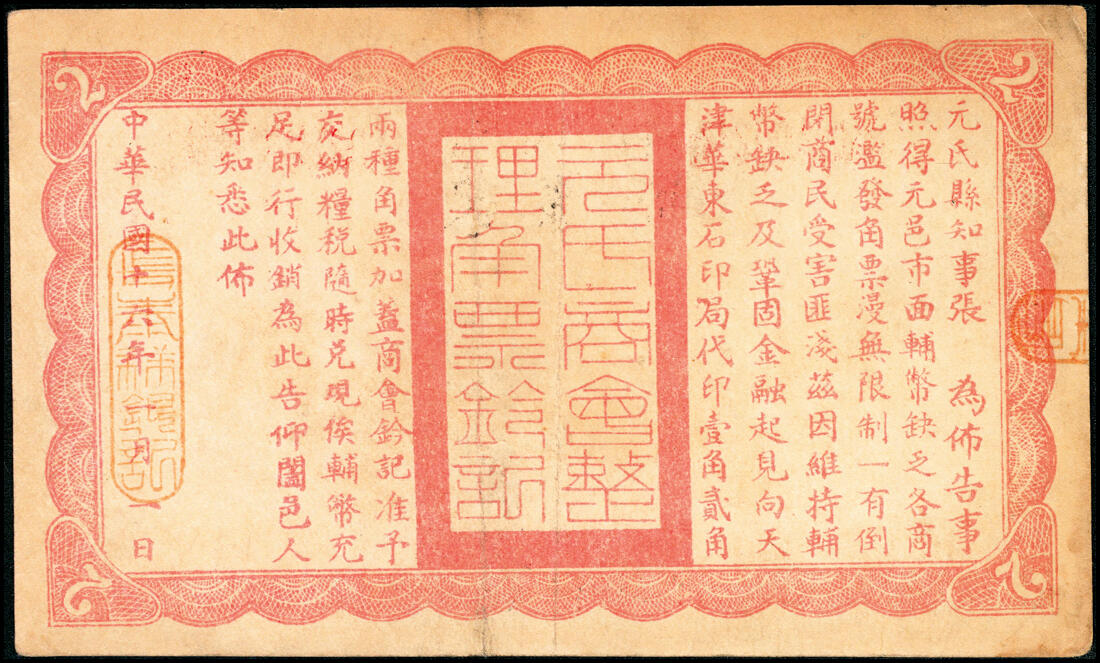 元氏縣知事張 為佈告事
照得元邑市面輔幣缺乏各商
號濫發角票漫無限制一有倒
閉商民受害匪淺茲因維持輔
幣缺乏及鞏固金融起見向天
津華東石印局代印壹角貳角
元氏商會整
理角票鈐記
兩種角票加蓋商會鈐記准予
交納糧稅隨時兌現俟輔幣充
足即行收銷為此告仰闔邑人
等知悉此佈
中華民國十八年 月 日
2
2
2
2